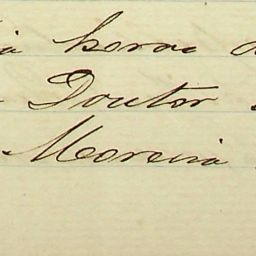 ia hora
Doutor
Moreira